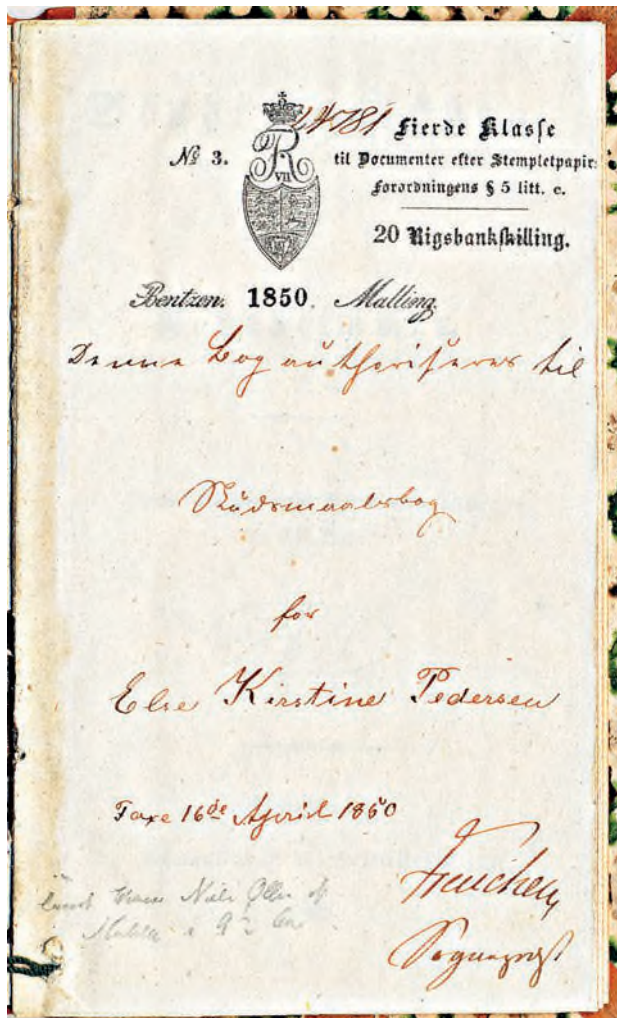 24781
Fierde Klasse
№ 3.
til Documenter efter Stempletpapir
Forordningens § 5 litt. c.
FR
VII
20 Rigsbankskilling.
Bentzen. 1850. Malling.
Denne Bog authoriseres til
Skudsmaalsbog
for
Else Kirstine Pedersen
Faxe 16de April 1850
Freuchen
Sognepræst
Niels